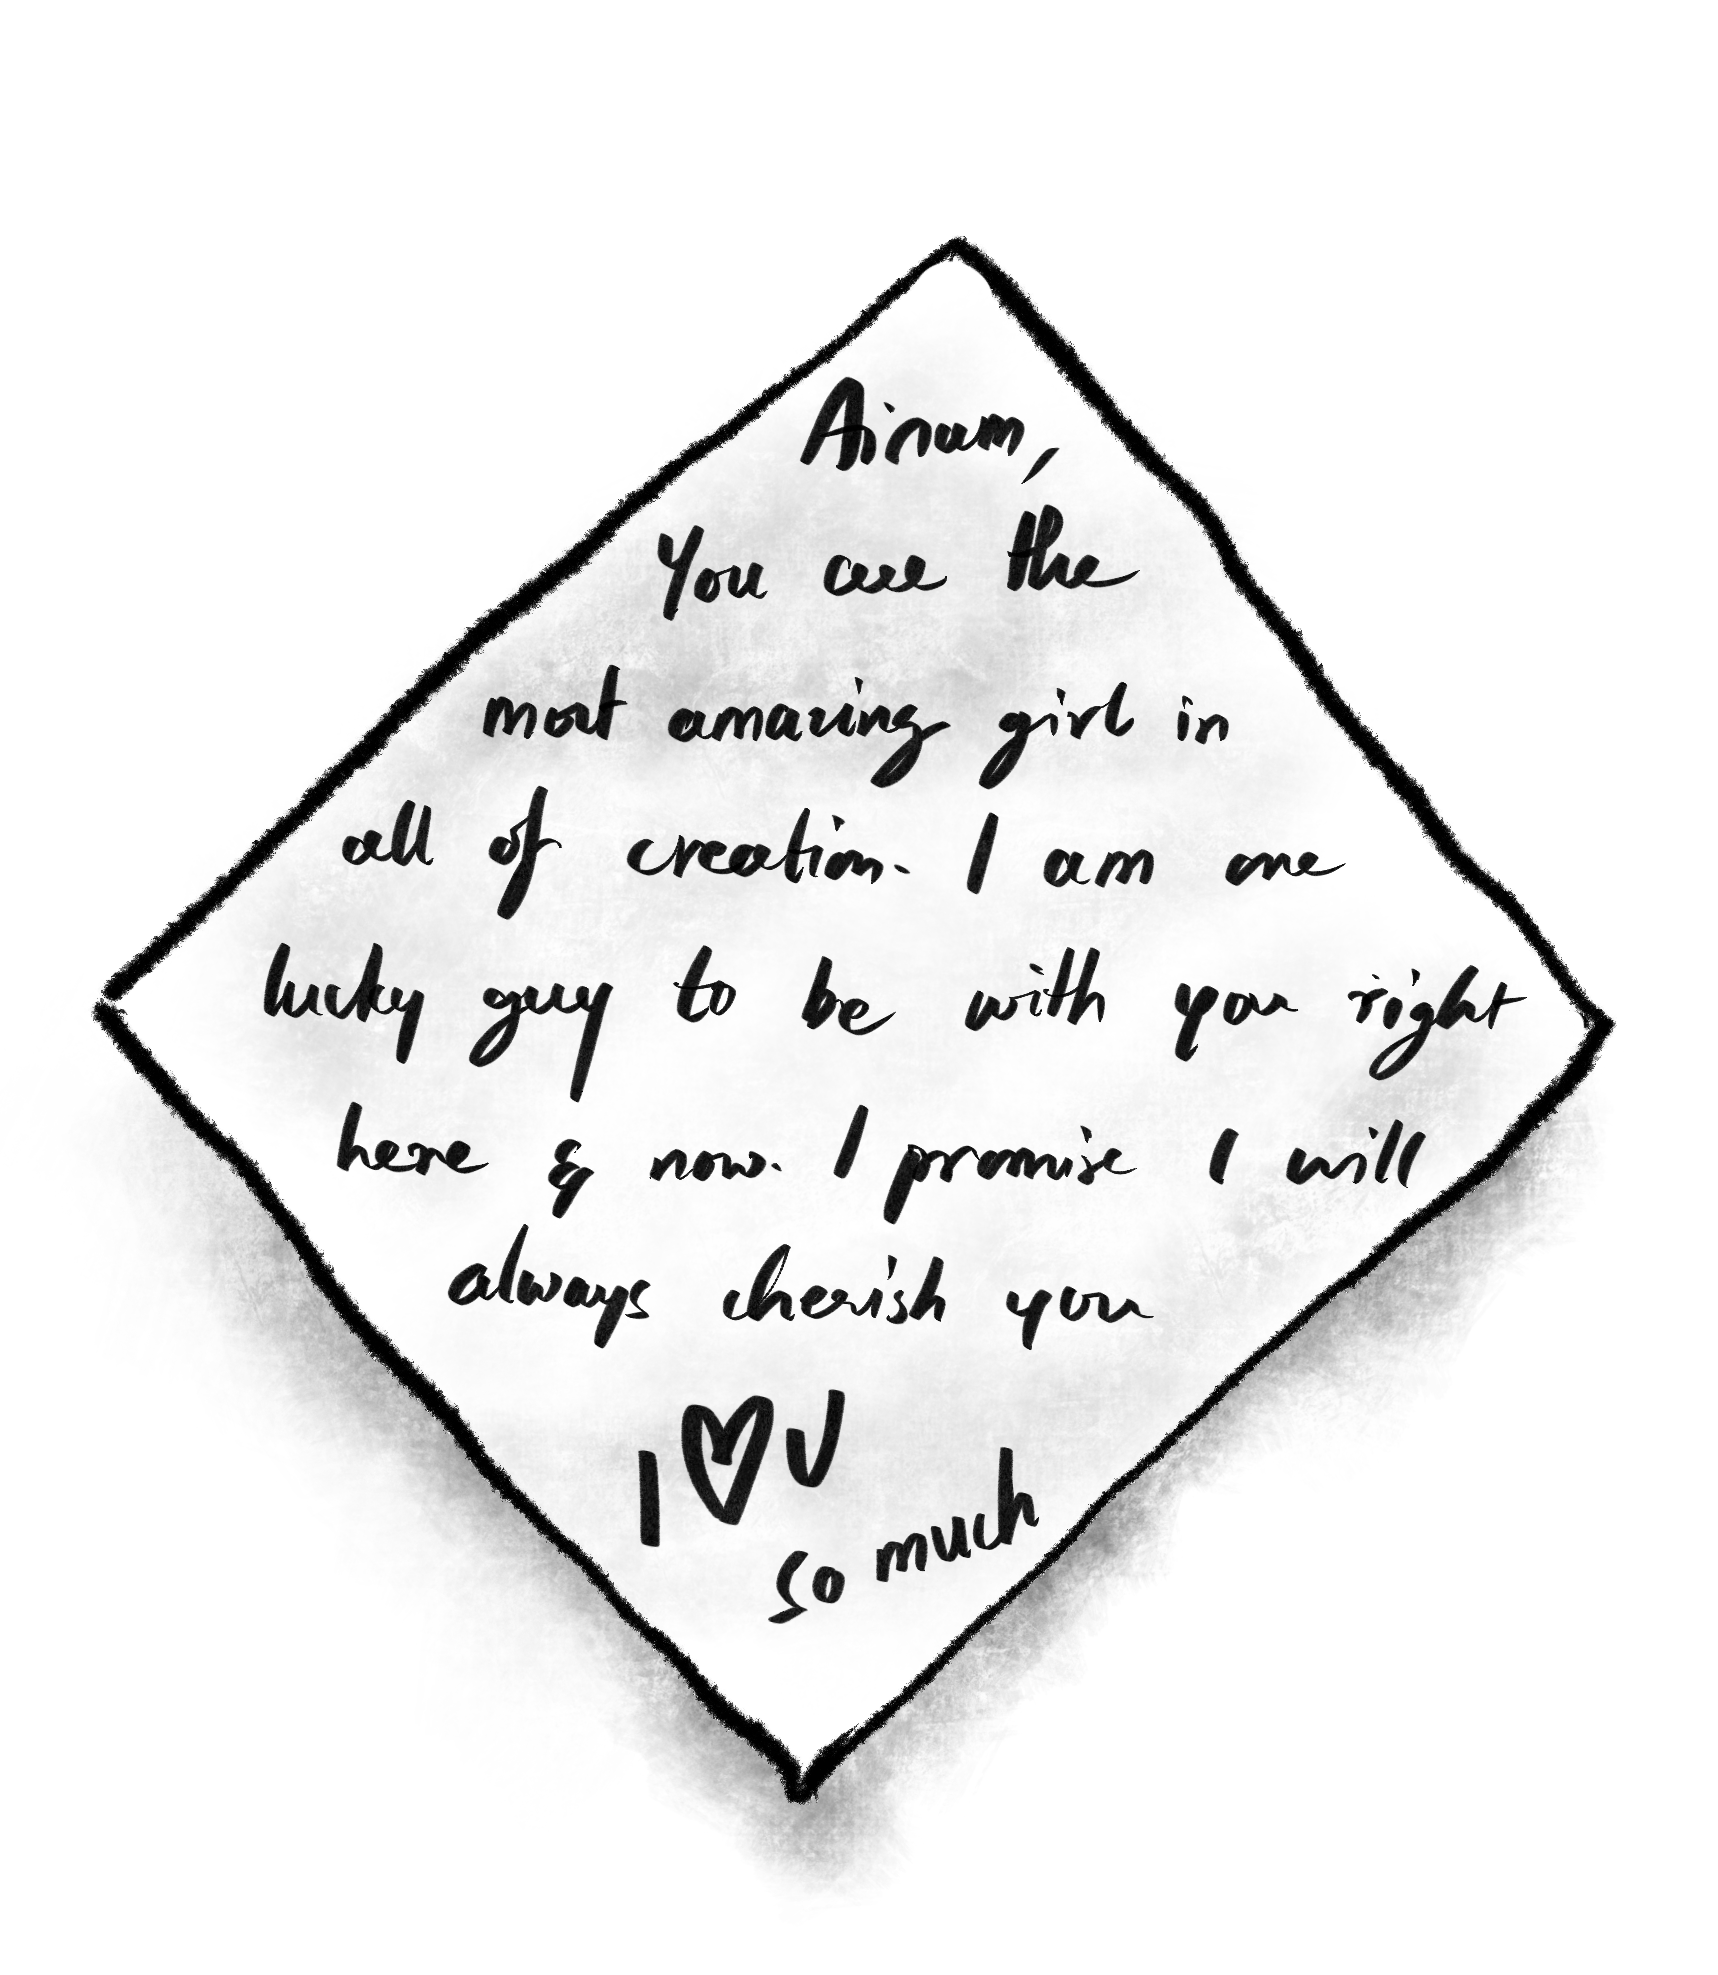 Ainum,
You are the
most amazing girl in
all of creation. I am one
lucky guy to be with you right
here & now. I promise I will
always cherish you
I ♥ U
so much